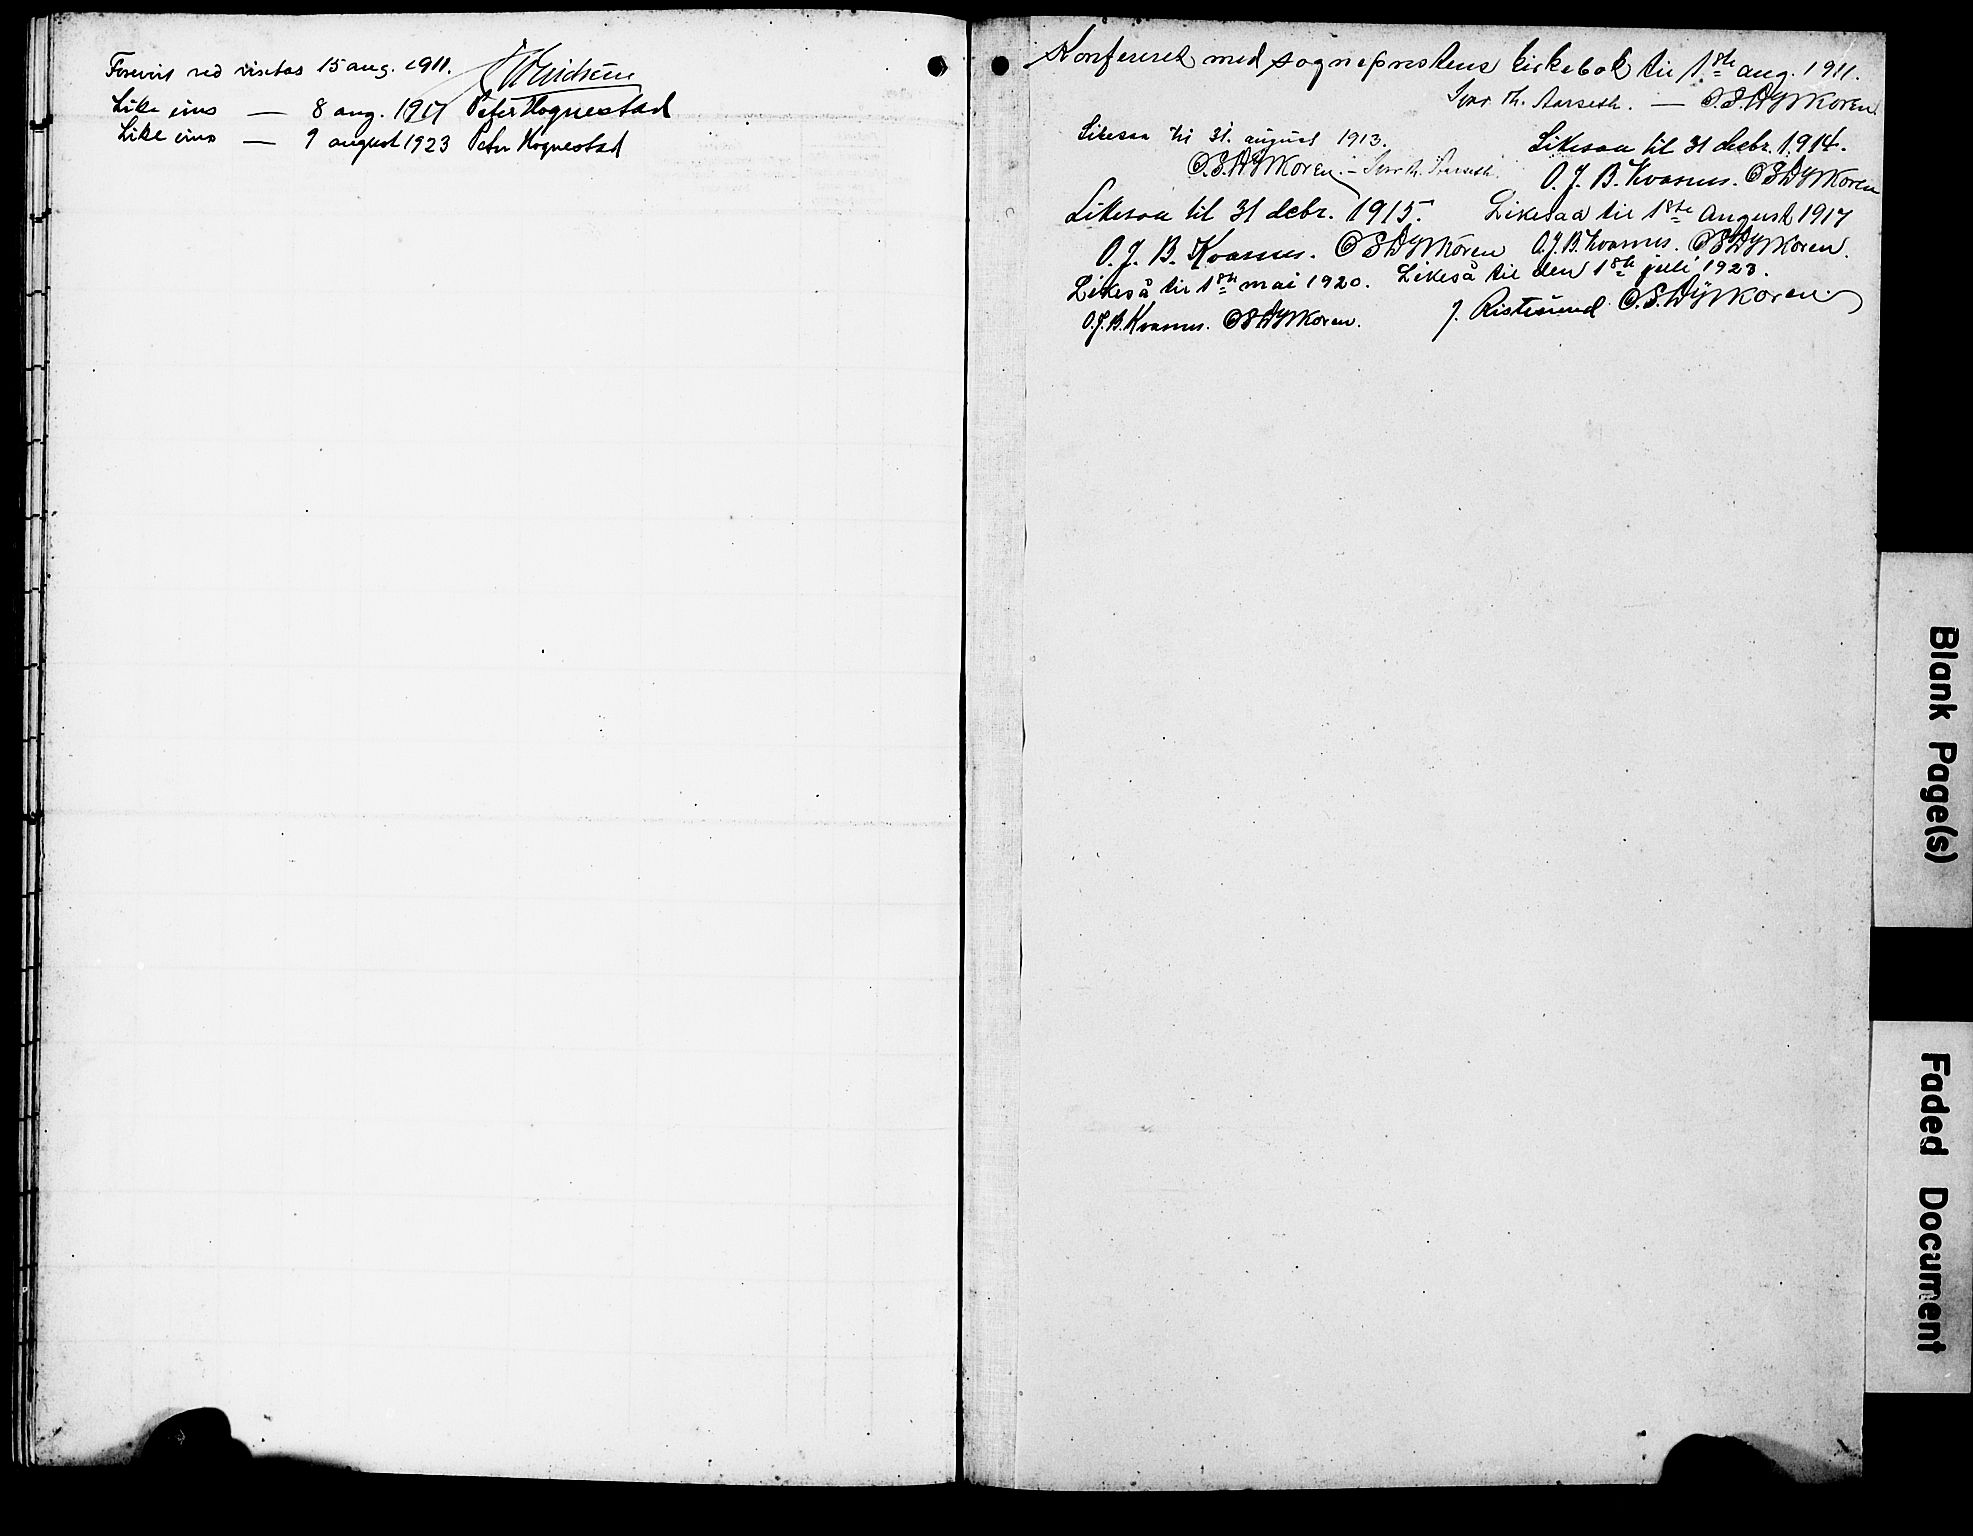 Forevist ved visitas 15 aug. 1911.
Like eins — 8 aug. 1917 Peter Hognestad
Like eins — 9 august 1923 Peter Hognestad
Konfereret med sogneprestens kirkebok til 1ste aug. 1911.
Ivar Th. Aarseth. — O.S.A. Dyrkoren
Likesaa til 31. august 1913.
O.S.A. Dyrkoren. – Ivar Th. Aarseth.
Likesaa til 31 decbr. 1914.
O. J. B. Kvasnes. O S A Dyrkoren
Likesaa til 31 debr. 1915.
O. J. B. Kvasnes. O S A Dyrkoren
Likesaa til 1ste August 1917
O.J.B. Kvasnes. O S A Dyrkoren.
Likeså til 1ste mai 1920.
O.J.B. Kvasnes. O S A Dyrkoren.
Likeså til den 1ste juli 1923.
J. Ristesund O.S.A. Dyrkoren
Blank Page(s)
Faded Document